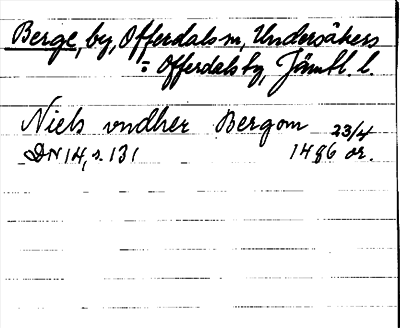 Berge, by, Offerdals sn, Undersåkers
= Offerdals tg, Jämtl. l.
Niels vndher Bergom 23/4
DN 14, s. 131 1486 or.